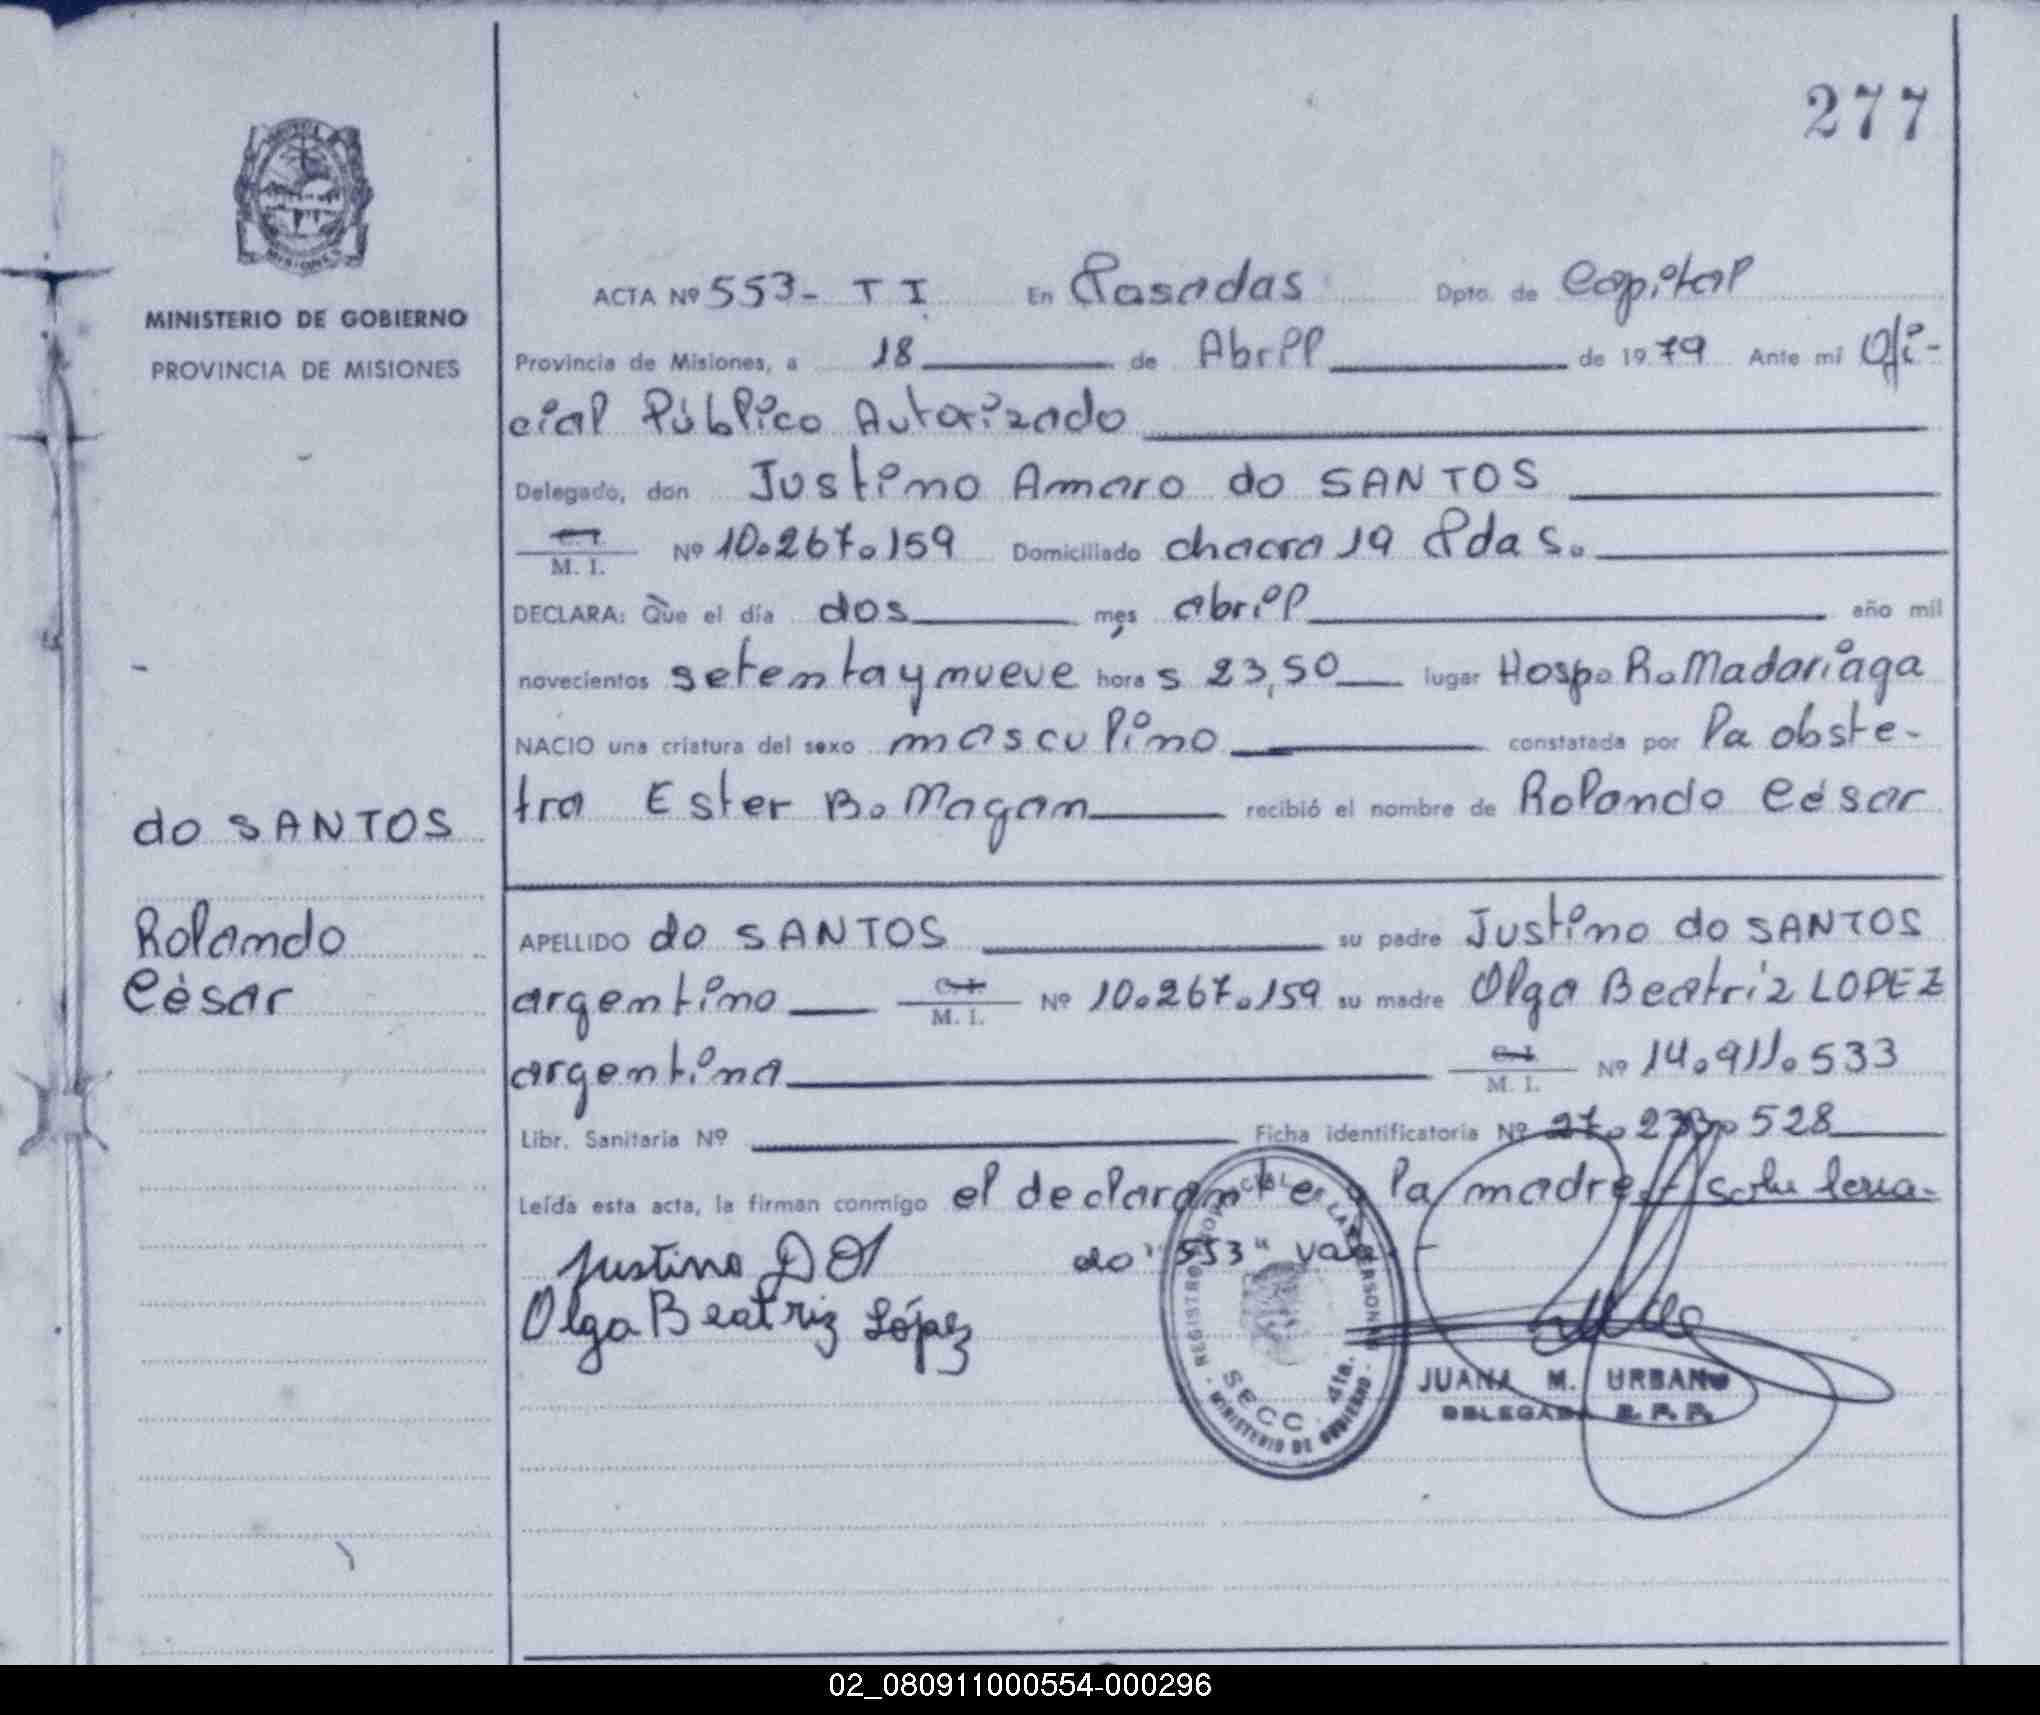 277
MINISTERIO DE GOBIERNO
PROVINCIA DE MISIONES
ACTA Nº 553- T I En Posadas Dpto. de Capital
Provincia de Misiones, a 18 de Abril de 1979 Ante mí Ofi-
cial Público Autorizado
Delegado, don Justino Amaro do SANTOS
C.I.
M. I. Nº 10.267.159 Domiciliado chacra 19 Pdas.
DECLARA: Que el día dos mes abril año mil
novecientos setenta y nueve hora s 23,50 lugar Hosp. R. Madariaga
NACIO una criatura del sexo masculino constatada por la obste-
tra Ester B. Magan recibió el nombre de Rolando César
do SANTOS
Rolando
César
APELLIDO do SANTOS su padre Justino do SANTOS
argentino C.I. M. I. Nº 10.267.159 su madre Olga Beatriz LOPEZ
argentina C.I. M. I. Nº 14.911.533
Libr. Sanitaria Nº Ficha identificatoria Nº 27.233.528
Leída esta acta, la firman conmigo el declarante y la madre.-
do "553" vale-
Justino D
Olga Beatriz López
REGISTRO PROVINCIAL DE LAS PERSONAS
SECC. 4ta.
MINISTERIO DE GOBIERNO
JUANA M. URBANO
DELEGADA R. P. P.
02_080911000554-000296